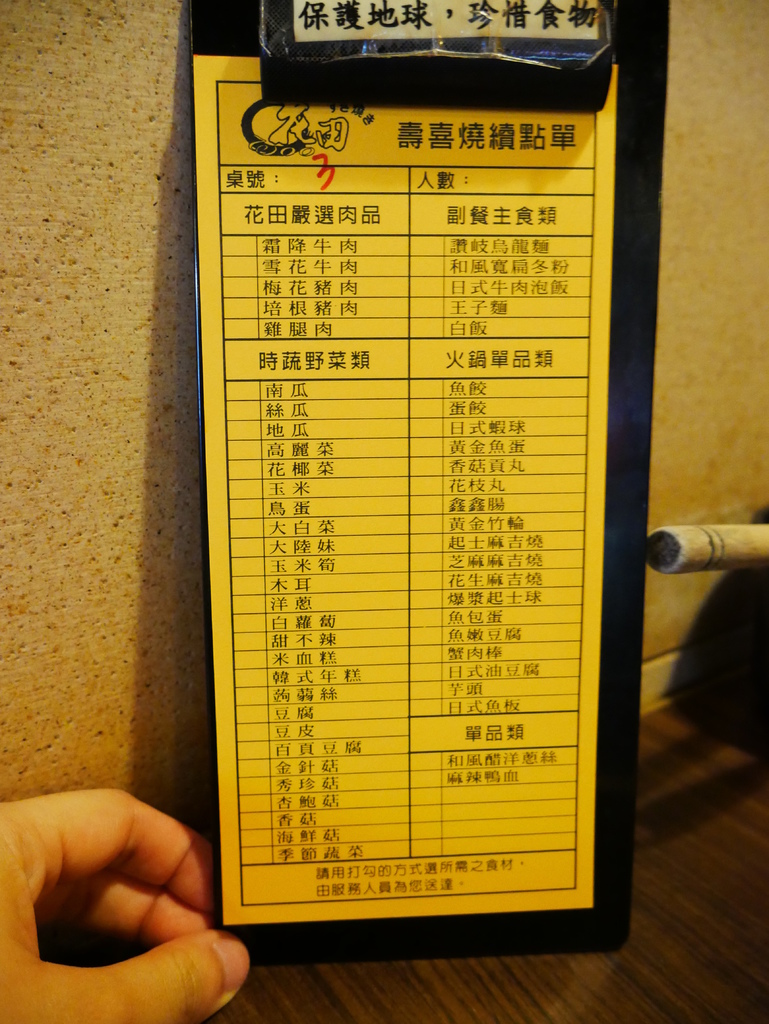 保護地球，珍惜食物
花田
すき燒き
壽喜燒續點單
桌號：3
人數：
花田嚴選肉品
霜降牛肉
雪花牛肉
梅花豬肉
培根豬肉
雞腿肉
時蔬野菜類
南瓜
絲瓜
地瓜
高麗菜
花椰菜
玉米
鳥蛋
大白菜
大陸妹
玉米筍
木耳
洋蔥
白蘿蔔
甜不辣
米血糕
韓式年糕
蒟蒻絲
豆腐
豆皮
百頁豆腐
金針菇
秀珍菇
杏鮑菇
香菇
海鮮菇
季節蔬菜
副餐主食類
讚岐烏龍麵
和風寬扁冬粉
日式牛肉泡飯
王子麵
白飯
火鍋單品類
魚餃
蛋餃
日式蝦球
黃金魚蛋
香菇貢丸
花枝丸
鑫鑫腸
黃金竹輪
起士麻吉燒
芝麻麻吉燒
花生麻吉燒
爆漿起士球
魚包蛋
魚嫩豆腐
蟹肉棒
日式油豆腐
芋頭
日式魚板
單品類
和風醋洋蔥絲
麻辣鴨血
請用打勾的方式選所需之食材，
由服務人員為您送達。